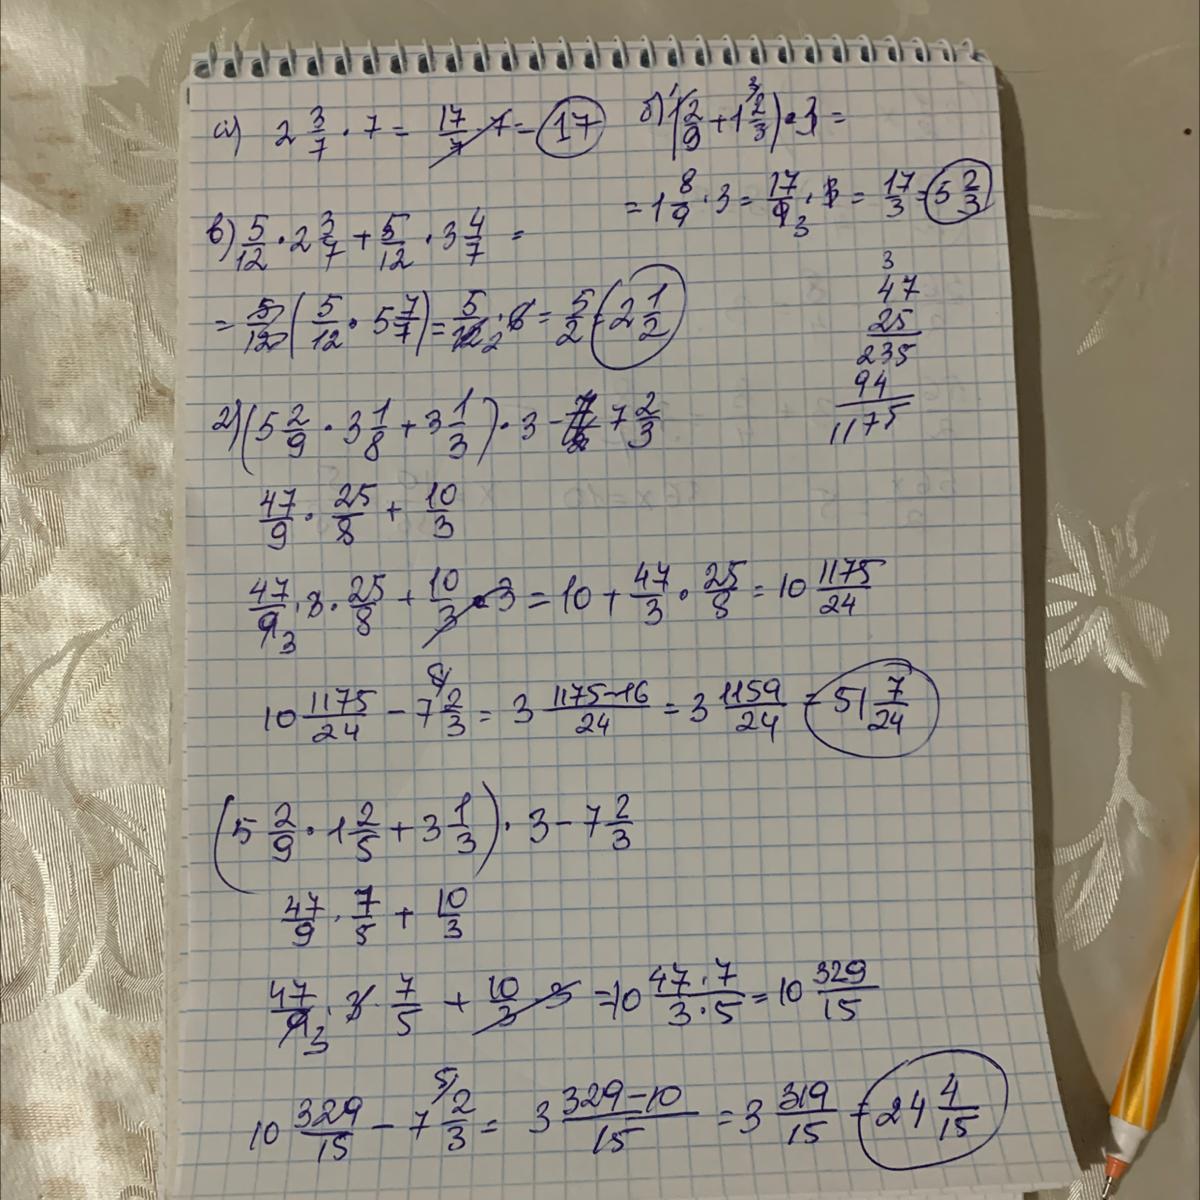 а) 2 3/7 · 7 = 17/7 · 7 = 17
б) (1 2/9 + 1 2/3) · 3 =
= 1 8/9 · 3 = 17/9 3 · 3 = 17/3 = 5 2/3
в) 5/12 · 2 3/7 + 5/12 · 3 4/7 =
= 5/12 (5/12 · 5 7/7) = 5/12 2 · 6 = 5/2 = 2 1/2
3
47
25
235
94
1175
г) (5 2/9 · 3 1/8 + 3 1/3) · 3 - 7 2/3
47/9 · 25/8 + 10/3
47/9 3 · 3 · 25/8 + 10/3 · 3 = 10 + 47/3 · 25/8 = 10 1175/24
10 1175/24 - 7 8/ 2/3 = 3 1175-16/24 = 3 1159/24 = 51 7/24
(5 2/9 · 1 2/5 + 3 1/3) · 3 - 7 2/3
47/9 · 7/5 + 10/3
47/9 3 · 3 · 7/5 + 10/3 · 3 = 10 47·7/3·5 = 10 329/15
10 329/15 - 7 5/ 2/3 = 3 329-10/15 = 3 319/15 = 24 4/15